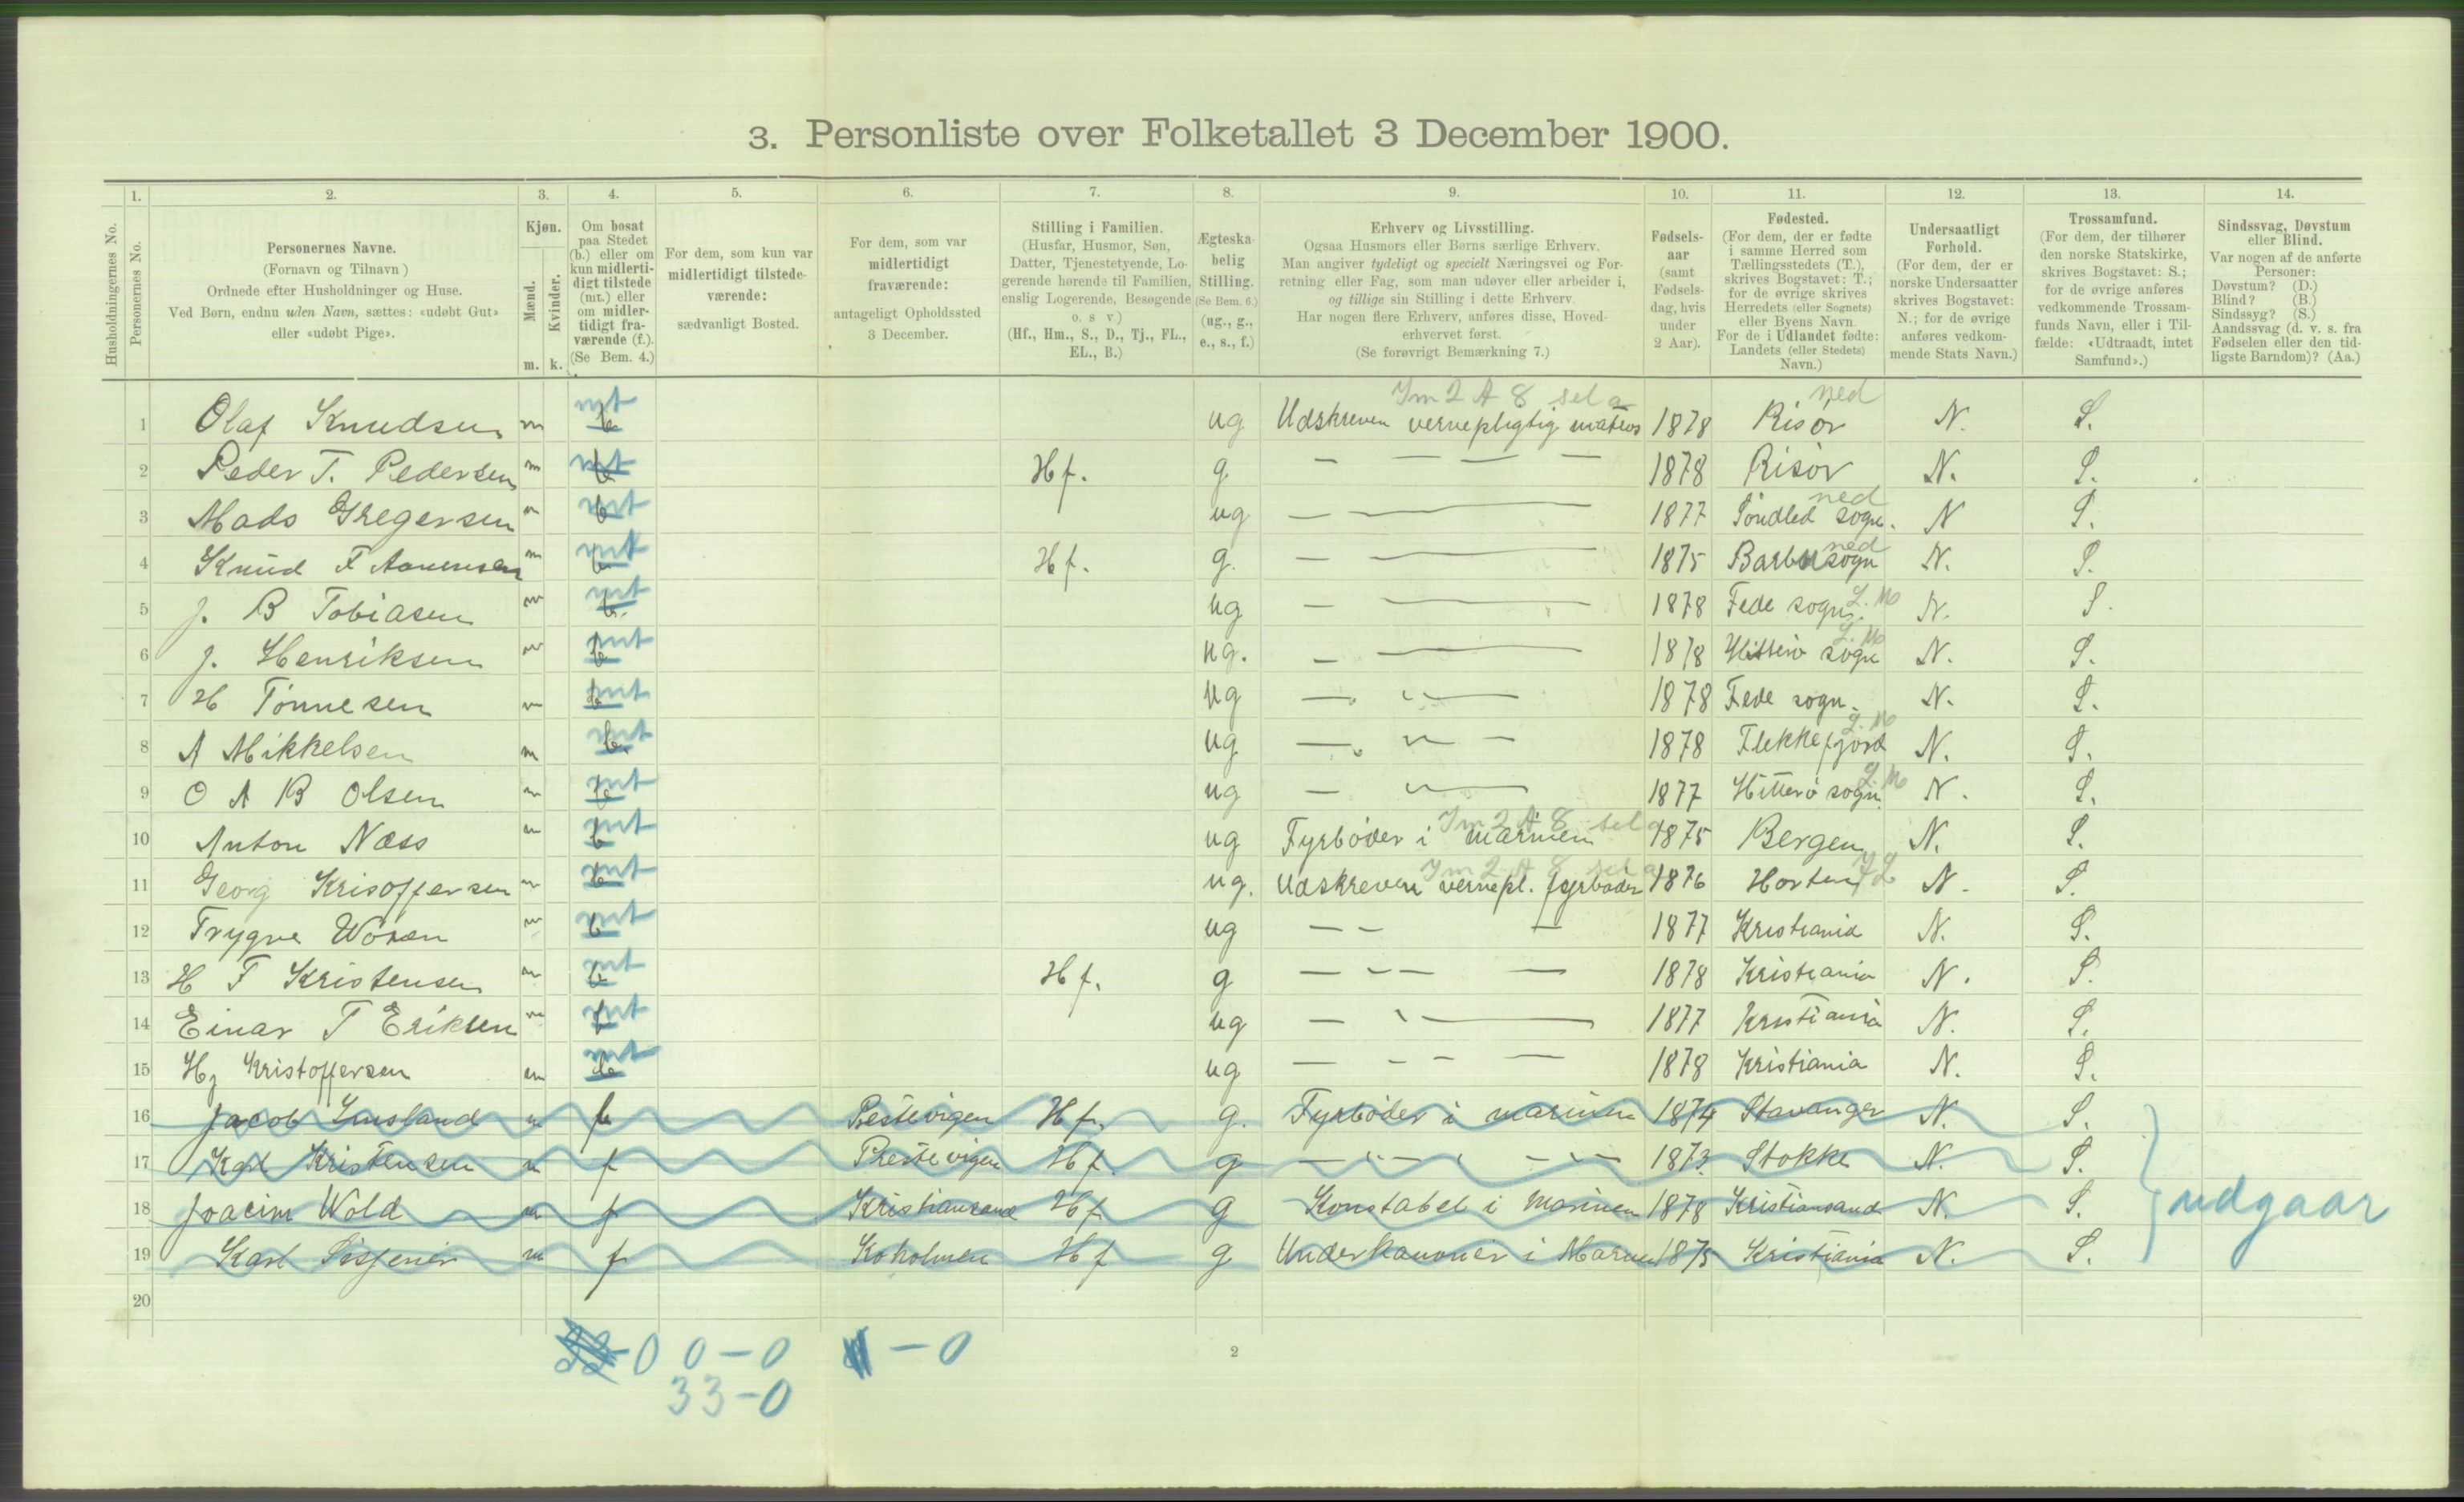 3. Personliste over Folketallet 3 December 1900.
1. 2. 3. 4. 5. 6. 7. 8. 9. 10. 11. 12. 13. 14.
Husholdningernes No.
Personernes No.
Personernes Navne.
(Fornavn og Tilnavn)
Ordnede efter Husholdninger og Huse.
Ved Børn, endnu uden Navn, sættes: «udøbt Gut»
eller «udøbt Pige».
Kjøn.
Mænd.
Kvinder.
m. k.
Om bosat
paa Stedet
(b.) eller om
kun midlerti-
digt tilstede
(mt.) eller
om midler-
tidigt fra-
værende (f.).
(Se Bem. 4.)
For dem, som kun var
midlertidigt tilstede-
værende:
sædvanligt Bosted.
For dem, som var
midlertidigt
fraværende:
antageligt Opholdssted
3 December.
Stilling i Familien.
(Husfar, Husmor, Søn,
Datter, Tjenestetyende, Lo-
gerende hørende til Familien,
enslig Logerende, Besøgende
o. s. v.)
(Hf., Hm., S., D., Tj., FL.,
EL., B.)
Ægteska-
belig
Stilling.
(Se Bem. 6.)
(ug., g.,
e., s., f.)
Erhverv og Livsstilling.
Ogsaa Husmors eller Børns særlige Erhverv.
Man angiver tydeligt og specielt Næringsvei og For-
retning eller Fag, som man udøver eller arbeider i,
og tillige sin Stilling i dette Erhverv.
Har nogen flere Erhverv, anføres disse, Hoved-
erhvervet først.
(Se forøvrigt Bemærkning 7.)
Fødsels-
aar
(samt
Fødsels-
dag, hvis
under
2 Aar).
Fødested.
(For dem, der er fødte
i samme Herred som
Tællingsstedets (T.),
skrives Bogstavet: T.;
for de øvrige skrives
Herredets (eller Sognets)
eller Byens Navn.
For de i Udlandet fødte:
Landets (eller Stedets)
Navn.)
Undersaatligt
Forhold.
(For dem, der er
norske Undersaatter
skrives Bogstavet:
N.; for de øvrige
anføres vedkom-
mende Stats Navn.)
Trossamfund.
(For dem, der tilhører
den norske Statskirke,
skrives Bogstavet: S.;
for de øvrige anføres
vedkommende Trossam-
funds Navn, eller i Til-
fælde: «Udtraadt, intet
Samfund».)
Sindssvag, Døvstum
eller Blind.
Var nogen af de anførte
Personer:
Døvstum? (D.)
Blind? (B.)
Sindssyg? (S.)
Aandssvag (d. v. s. fra
Fødselen eller den tid-
ligste Barndom)? (Aa.)
1 Olaf Knudsen m b mt ug Udskreven vernepligtig matros 1878 Risør ned N. S.
2 Peder T. Pedersen m b mt Hf. g — — — — 1878 Risør N. S.
3 Mads Gregersen m b mt ug — — 1877 Søndled sogn. ned N S.
4 Knud F Aanensen m b mt Hf. g. — — 1875 Barbu sogn ned N. S.
5 J. B Tobiasen m b. mt ug — — 1878 Fede sogn. L. M N. S.
6 J. Henriksen m b mt ug. — — 1878 Hitterø sogn L. M N. S.
7 H Tønnesen m b mt ug — — 1878 Fede sogn. N. S.
8 A Mikkelsen m b. mt ug — — 1878 Flekkefjord L. M N. S.
9 O A B Olsen m b mt ug — — 1877 Hitterø sogn. L. M N. S.
10 Anton Næss m b mt ug Fyrbøder i marinen 1875 Bergen N. S.
11 Georg Krisoffersen m b mt ug. Udskreven vernepl. fyrbøder 1876 Horten N. S.
12 Trygve m b mt ug — — — 1877 Kristiania N. S.
13 H F Kristensen m b mt Hf. g — — — — 1878 Kristiania N. S.
14 Einar T Eriksen m b mt ug — — 1877 Kristiania N. S.
15 Hj Kristoffersen m b mt ug — — — — 1878 Kristiania N. S.
16 Jacob Imsland m f Pestevigen Hf. g. Fyrbøder i marinen 1874 Stavanger N. S.
17 Karl Kristensen m f Prestevigen Hf. g — — — — 1873 Stokke N. S.
18 Joacim Wold m f Kristiansand Hf g Konstabel i Marinen 1878 Kristiansand N. S.
19 Karl m f Koholmen Hf g Underkanoner i Marinen 1875 Kristiania N. S.
udgaar
20
0 0 – 0 – 0
33 – 0
2